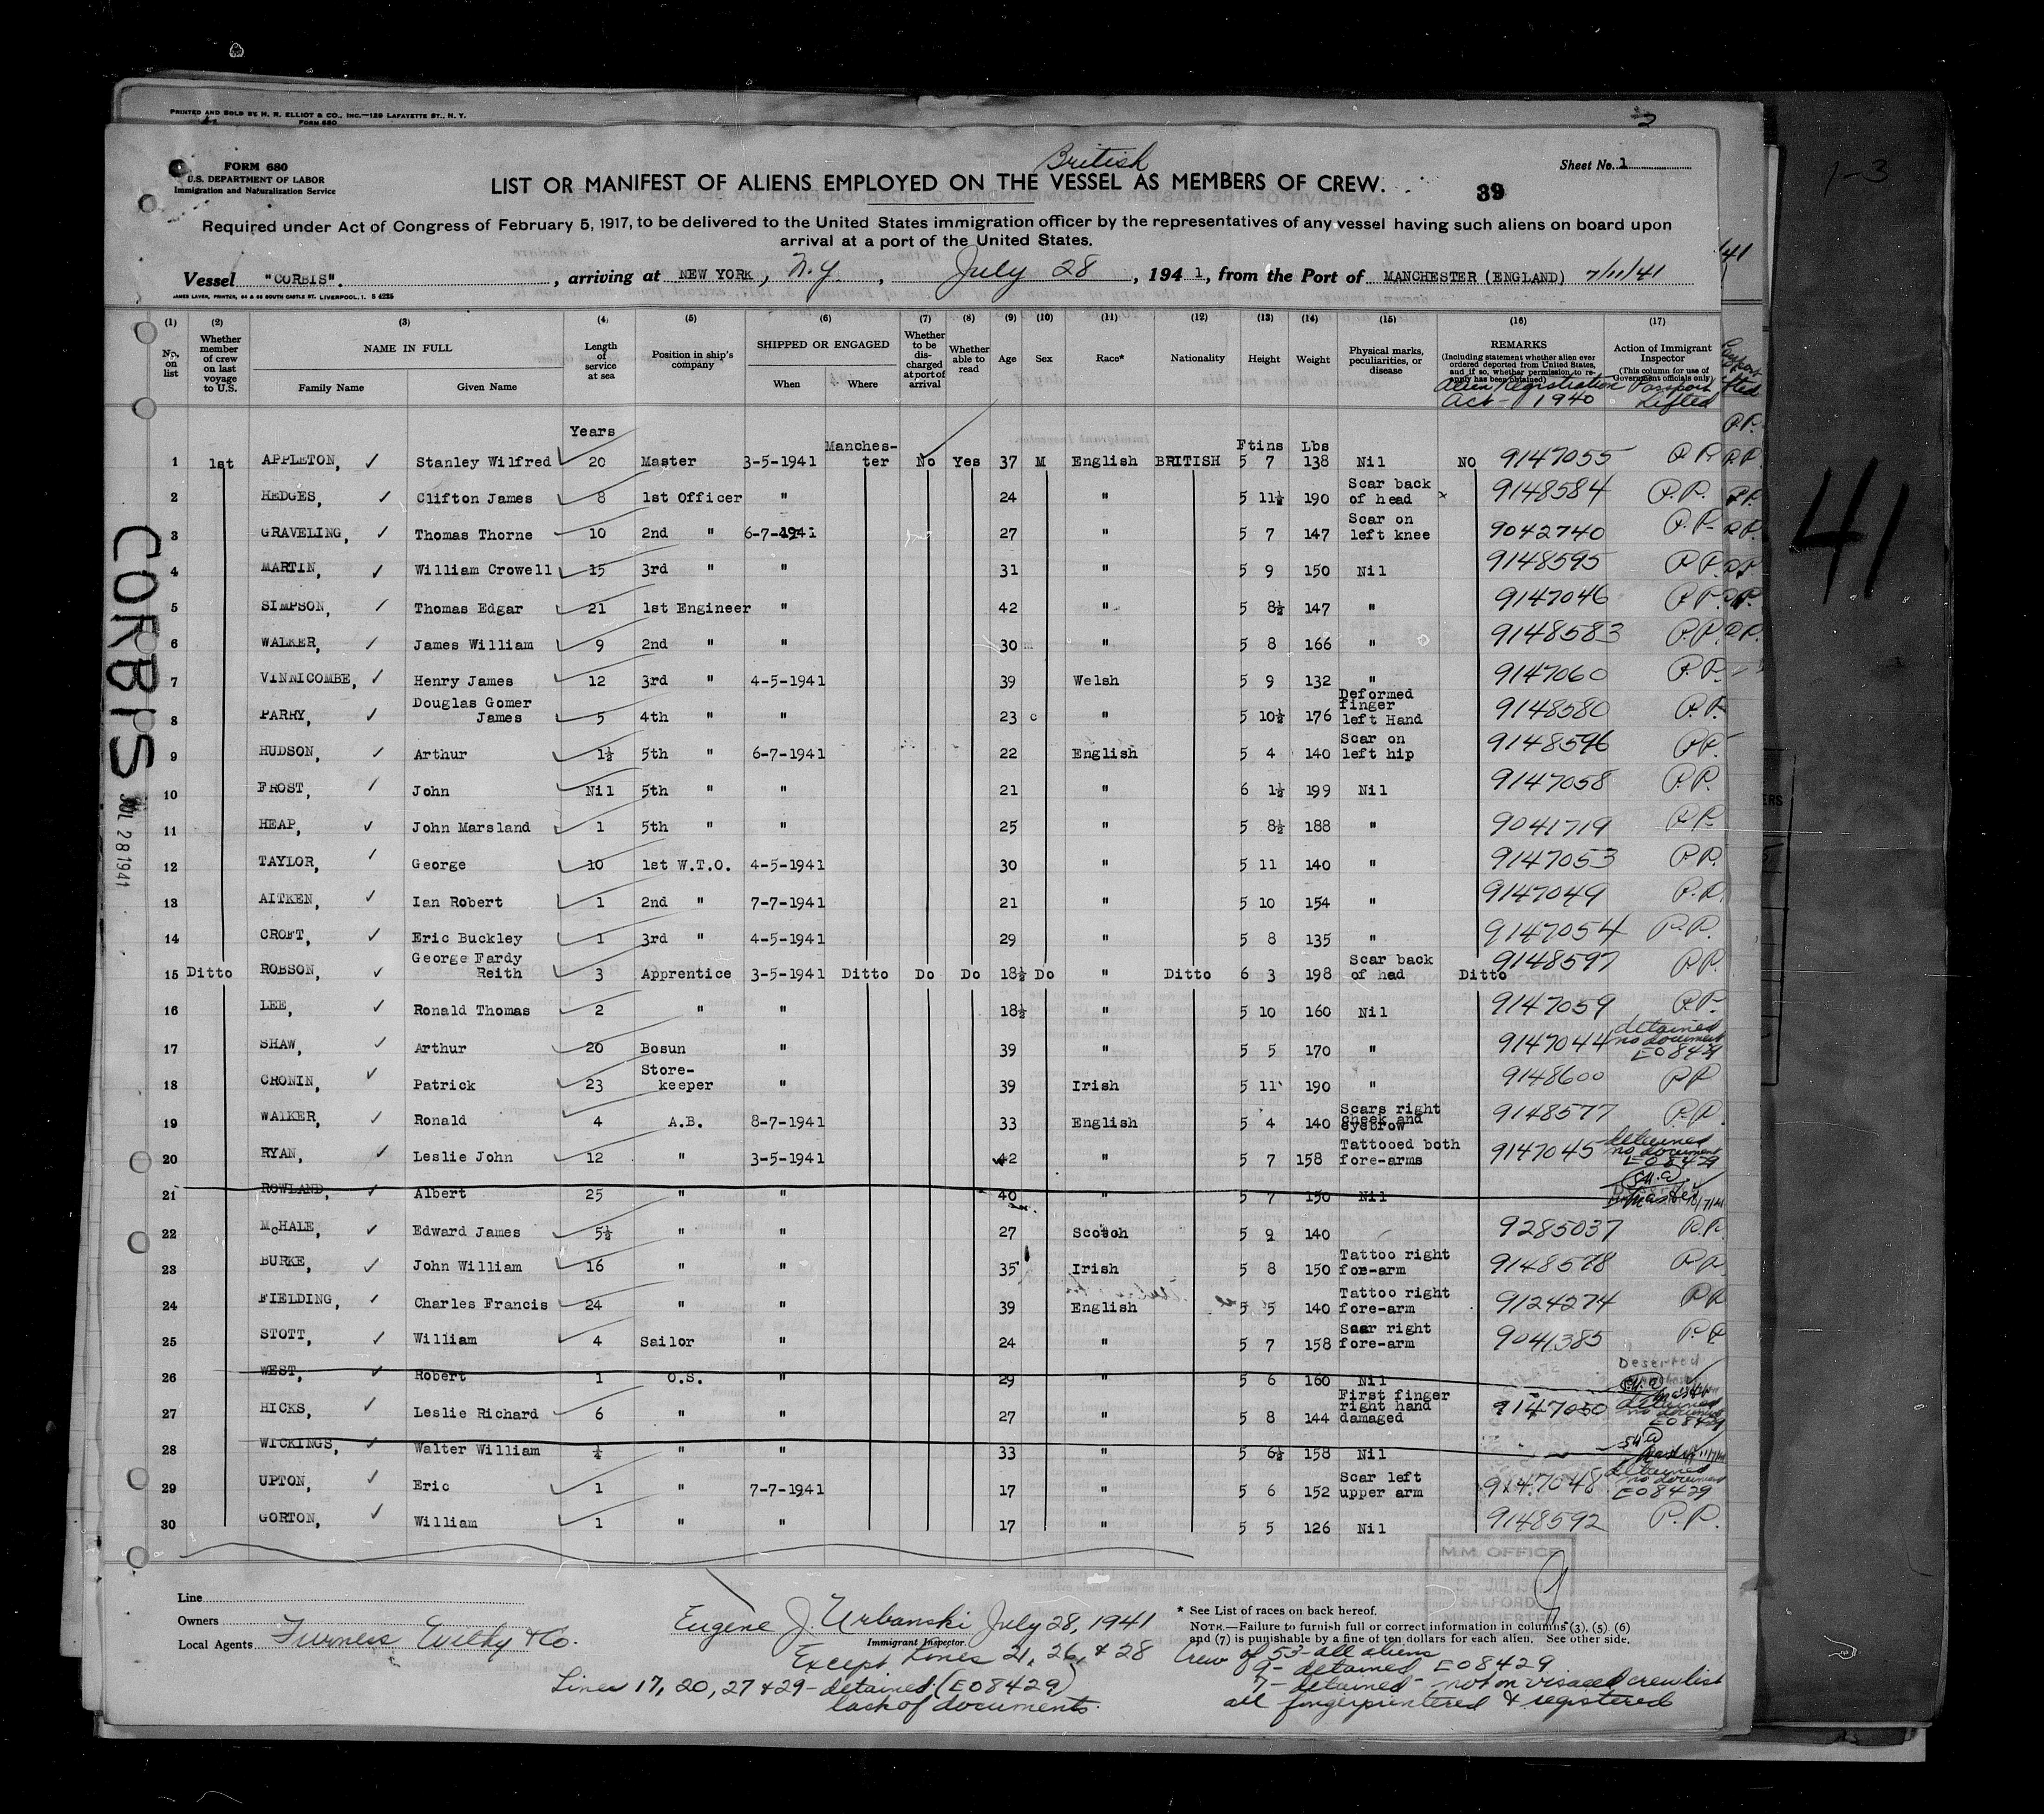 PRINTED AND SOLD BY H. R. ELLIOT & CO., INC.—129 LAFAYETTE ST., N. Y.
FORM 680
2
FORM 680
U.S. DEPARTMENT OF LABOR
Immigration and Naturalization Service
British
Sheet No. 1
LIST OR MANIFEST OF ALIENS EMPLOYED ON THE VESSEL AS MEMBERS OF CREW.
39
Required under Act of Congress of February 5, 1917, to be delivered to the United States immigration officer by the representatives of any vessel having such aliens on board upon
arrival at a port of the United States.
Vessel "CORBIS". , arriving at NEW YORK, N.Y. , July 28 , 1941, from the Port of MANCHESTER (ENGLAND) 7/11/41
JAMES LAVER, PRINTER, 54 & 56 SOUTH CASTLE ST. LIVERPOOL, 1. S 4225
(1) (2) (3) (4) (5) (6) (7) (8) (9) (10) (11) (12) (13) (14) (15) (16) (17)
No. on list
Whether member of crew on last voyage to U.S.
NAME IN FULL
Family Name Given Name
Length of service at sea
Position in ship's company
SHIPPED OR ENGAGED
When Where
Whether to be discharged at port of arrival
Whether able to read
Age
Sex
Race*
Nationality
Height
Weight
Physical marks, peculiarities, or disease
REMARKS
(Including statement whether alien ever ordered deported from United States, and if so, whether permission to re-apply has been obtained)
Alien Registration Act - 1940
Action of Immigrant Inspector
(This column for use of Government officials only)
Passport Lifted
Years Manches- Ftins Lbs
1 1st APPLETON, Stanley Wilfred 20 Master 3-5-1941 ter No Yes 37 M English BRITISH 5 7 138 Nil NO 9147055 P.P.
2 HEDGES, Clifton James 8 1st Officer " 24 " 5 11½ 190 Scar back of head x 9148584 P.P.
3 GRAVELING, Thomas Thorne 10 2nd " 6-7-1941 27 " 5 7 147 Scar on left knee 9042740 P.P.
4 MARTIN, William Crowell 15 3rd " " 31 " 5 9 150 Nil 9148595 P.P.
5 SIMPSON, Thomas Edgar 21 1st Engineer " 42 " 5 8½ 147 " 9147046 P.P.
6 WALKER, James William 9 2nd " " 30 " 5 8 166 " 9148583 P.P.
7 VINNICOMBE, Henry James 12 3rd " 4-5-1941 39 Welsh 5 9 132 " 9147060 P.P.
8 PARRY, Douglas Gomer James 5 4th " " 23 c " 5 10½ 176 Deformed finger left Hand 9148580 P.P.
9 HUDSON, Arthur 1½ 5th " 6-7-1941 22 English 5 4 140 Scar on left hip 9148596 P.P.
10 FROST, John Nil 5th " " 21 " 6 1½ 199 Nil 9147058 P.P.
11 HEAP, John Marsland 1 5th " " 25 " 5 8½ 188 " 9041719 P.P.
12 TAYLOR, George 10 1st W.T.O. 4-5-1941 30 " 5 11 140 " 9147053 P.P.
13 AITKEN, Ian Robert 1 2nd " 7-7-1941 21 " 5 10 154 " 9147049 P.P.
14 CROFT, Eric Buckley 1 3rd " 4-5-1941 29 " 5 8 135 " 9147054 P.P.
15 Ditto ROBSON, George Fardy Reith 3 Apprentice 3-5-1941 Ditto Do Do 18½ Do " Ditto 6 3 198 Scar back of had Ditto 9148597 P.P.
16 LEE, Ronald Thomas 2 " " 18½ " 5 10 160 Nil 9147059 P.P.
17 SHAW, Arthur 20 Bosun " 39 " 5 5 170 " 9147044 detained no document EO 8429
18 CRONIN, Patrick 23 Store-keeper " 39 Irish 5 11 190 " 9148600 P.P.
19 WALKER, Ronald 4 A.B. 8-7-1941 33 English 5 4 140 Scars right cheek and eyebrow 9148577 P.P.
20 RYAN, Leslie John 12 " 3-5-1941 42 " 5 7 158 Tattooed both fore-arms 9147045 detained no document EO 8429
21 ROWLAND, Albert 25 " " 40 " 5 7 150 Nil Master
22 McHALE, Edward James 5½ " " 27 Scotch 5 9 140 9285037 P.P.
23 BURKE, John William 16 " " 35 Irish 5 8 150 Tattoo right for-arm 9148578 P.P.
24 FIELDING, Charles Francis 24 " " 39 English 5 5 140 Tattoo right fore-arm 9124274 P.P.
25 STOTT, William 4 Sailor " 24 " 5 7 158 Scar right fore-arm 9041385 P.P.
26 WEST, Robert 1 O.S. " 29 " 5 6 160 Nil Deserted
27 HICKS, Leslie Richard 6 " " 27 " 5 8 144 First finger right hand damaged 9147050 detained no document EO 8429
28 WICKINGS, Walter William ¼ " " 33 " 5 6½ 158 Nil
29 UPTON, Eric 1 " 7-7-1941 17 " 5 6 152 Scar left upper arm 9147048 detained no document EO 8429
30 GORTON, William 1 " " 17 " 5 5 126 Nil 9148592 P.P.
M.M OFFICE
SALFORD
MANCHESTER
Line
Owners
Local Agents Furness Withy & Co.
Eugene J. Urbanski July 28, 1941
Immigrant Inspector.
Except Lines 21, 26, & 28
Lines 17, 20, 27 & 29 - detained (EO 8429)
lack of documents.
* See List of races on back hereof.
NOTE.—Failure to furnish full or correct information in columns (3), (5) (6)
and (7) is punishable by a fine of ten dollars for each alien. See other side.
Crew of 53 - all aliens
9 - detained EO 8429
7 - detained - not on visaed crew list
all fingerprinted & registered
CORBIS
JUL 28 1941
41
1-3
41